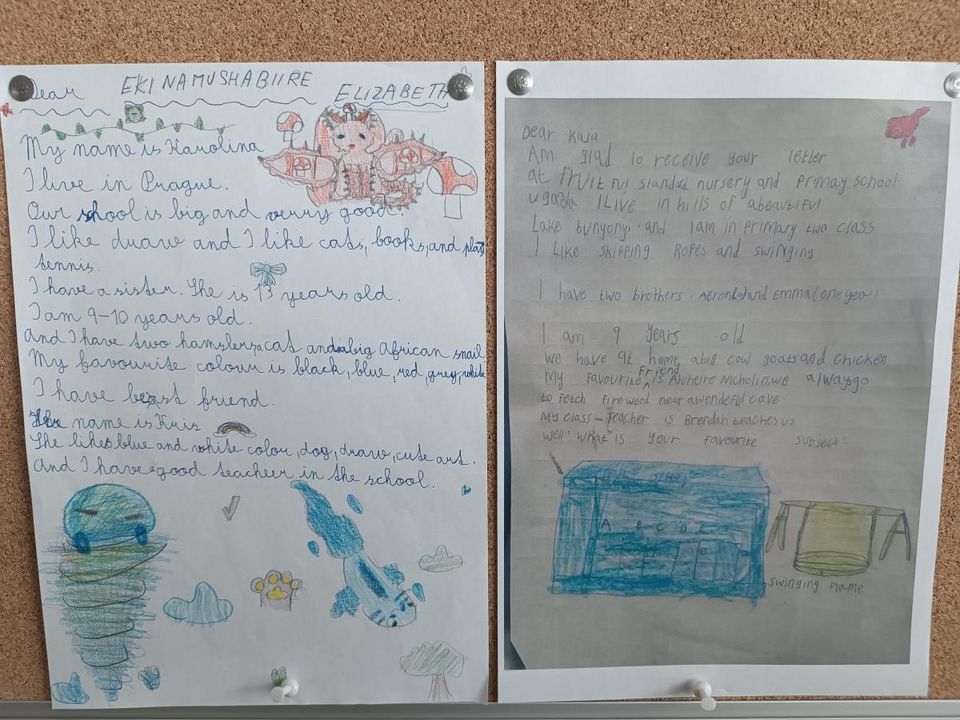 Dear EKINAMUSHABIIRE ELIZABETH
My name is Karolina
I live in Prague.
Our school is big and verry good.
I like draw and I like cats, books, and play
tennis.
I have a sister. She is 13 years old.
I am 9-10 years old.
And I have two hamsters, a cat and a big African snail
My favourite colour is black, blue, red, grey, white
I have best friend.
Her name is Kris
She likes blue and white color, dog, draw, cute art.
And I have good teacheer in the school.
Dear Kaja
Am glad to receive your letter
at FRUIT FUL standad nursery and Primay school
uganda I Live in hills of abeautiful
Lake bunyonyi and I am in Primary two class
I Like skipping Ropes and swinging
I have two brothers. and Emma (one year)
I am 9 years old
we have at home abig cow goats and chicken
My Favourite Friend is Nicholin we always go
to fetch firewood near awendeful cave
My class-Teacher is Brendah teaches us
well. What is your favourite subject.
A B C D E
swinging frame